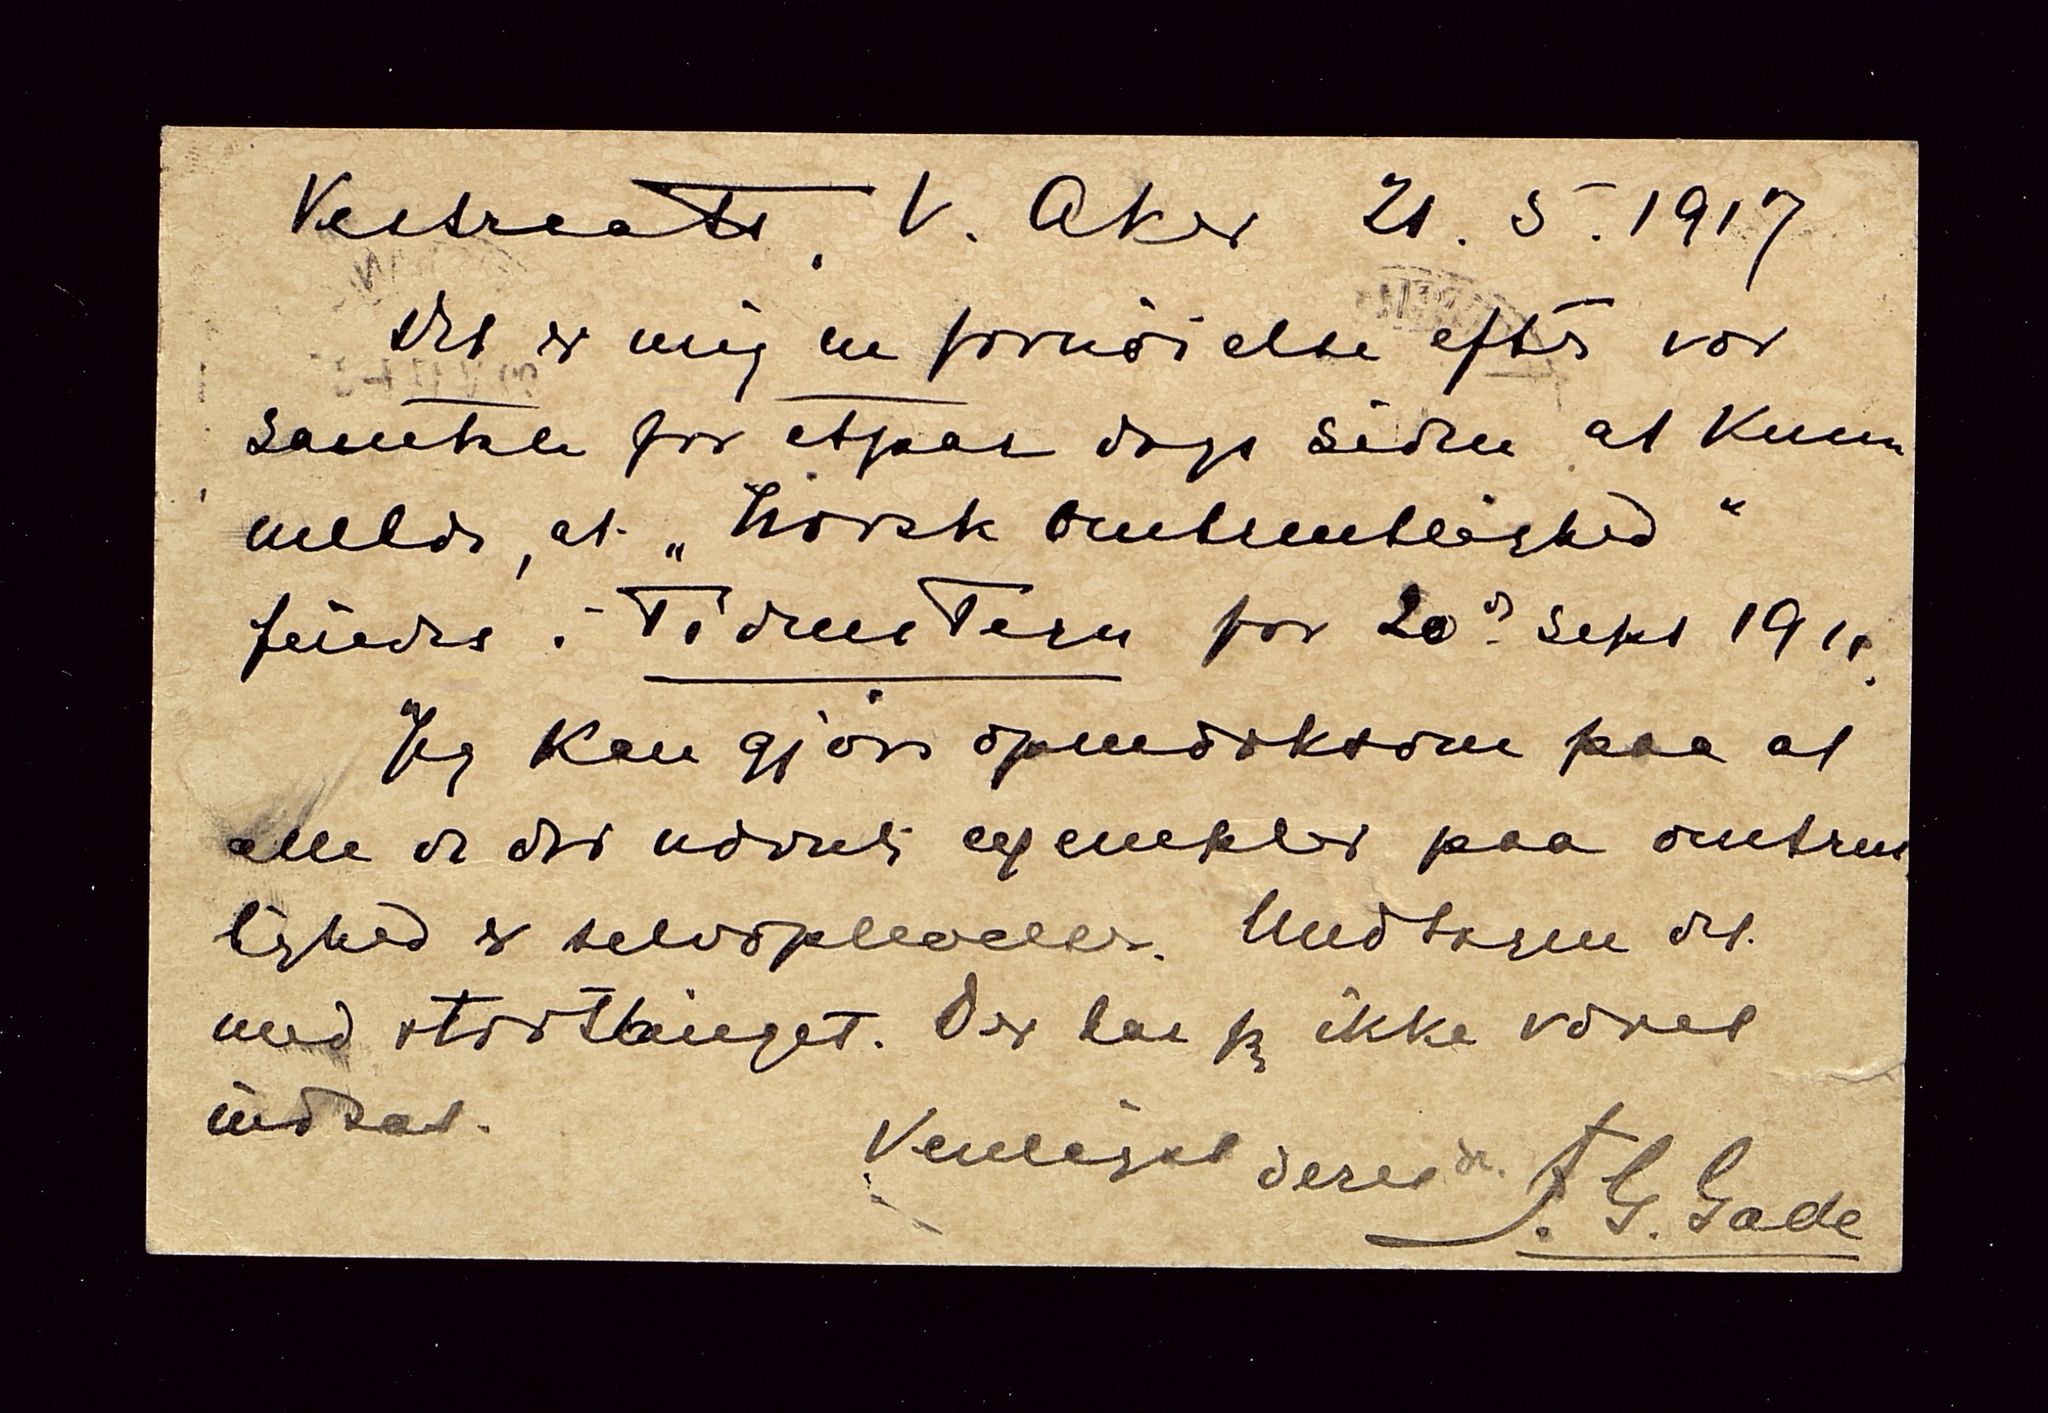 V. Aker 21. 5. 1917
Det er mig en fornöielse efter vor
samtale for etpar dage siden at kunn
melde, at „Norsk Omtrentlighed“
findes i Tidens Tegn for 20de Sept 1911.
Jeg kan gjöre opmærksom paa at
alle de der nævnte exempler paa omtrent
lighed er selvoplevelser. Undtagen det
med stortinget. Der har jeg ikke været
indsat.
Venligst deres dr. F. G. Gade